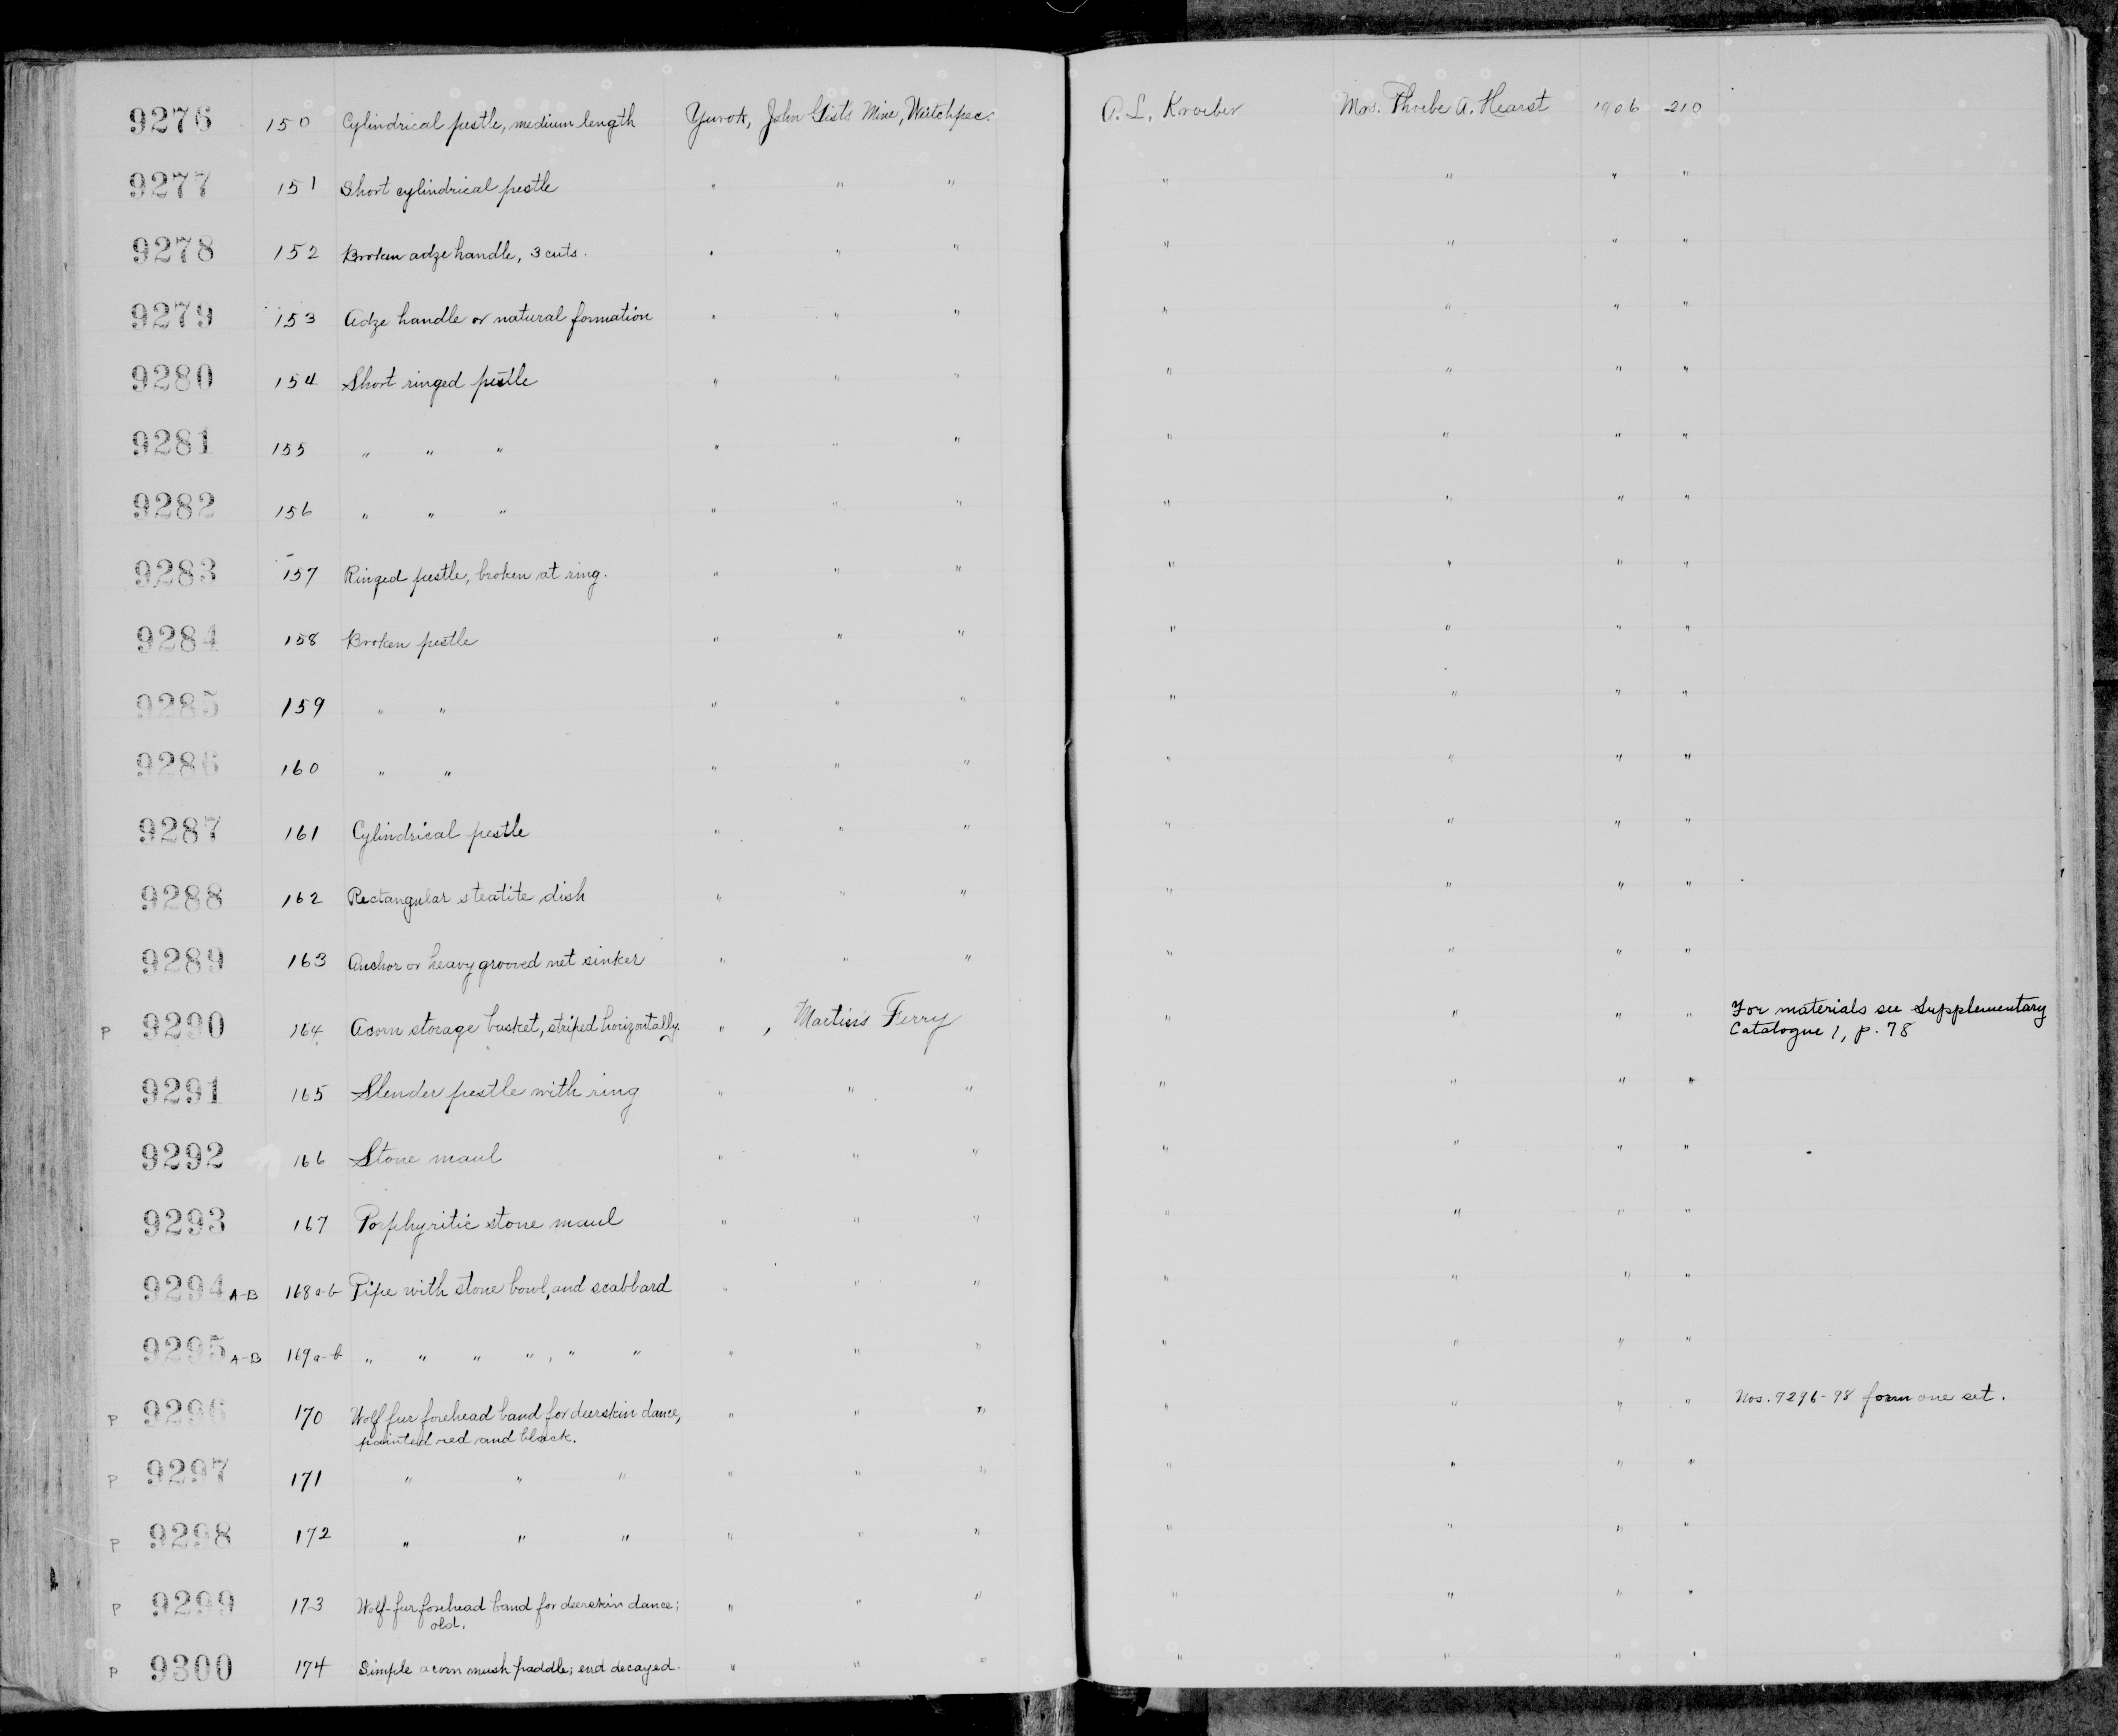 9276 150 Cylindrical pestle, medium length Yurok, John Gists Mine, Weitchpec. A. L. Kroeber Mrs. Phoebe A. Hearst 1906 210
9277 151 Short cylindrical pestle " " " " " " "
9278 152 Broken adze handle, 3 cuts. " " " " " " "
9279 153 Adze handle or natural formation " " " " " " "
9280 154 Short ringed pestle " " " " " " "
9281 155 " " " " " " " " " "
9282 156 " " " " " " " " " "
9283 157 Ringed pestle, broken at ring. " " " " " " "
9284 158 Broken pestle " " " " " " "
9285 159 " " " " " " " " "
9286 160 " " " " " " " " "
9287 161 Cylindrical pestle " " " " " " "
9288 162 Rectangular steatite dish " " " " " " "
9289 163 Anchor or heavy grooved net sinker " " " " " " "
P 9290 164 Acorn storage basket, striped horizontally. " , Martins Ferry " " " " For materials see Supplementary
Catalogue 1, p. 78
9291 165 Slender pestle with ring " " " " " " "
9292 166 Stone maul " " " " " " "
9293 167 Porphyritic stone maul " " " " " " "
9294 A-B 168 a-b Pipe with stone bowl, and scabbard " " " " " " "
9295 A-B 169 a-b " " " " , " " " " " " " " "
P 9296 170 Wolf fur forehead band for deerskin dance, " " " " " " " Nos. 9296-98 form one set.
painted red and black.
P 9297 171 " " " " " " " " " "
P 9298 172 " " " " " " " " " "
P 9299 173 Wolf-fur forehead band for deerskin dance; " " " " " " "
old.
P 9300 174 Simple acorn mush paddle; end decayed. " " " " " " "